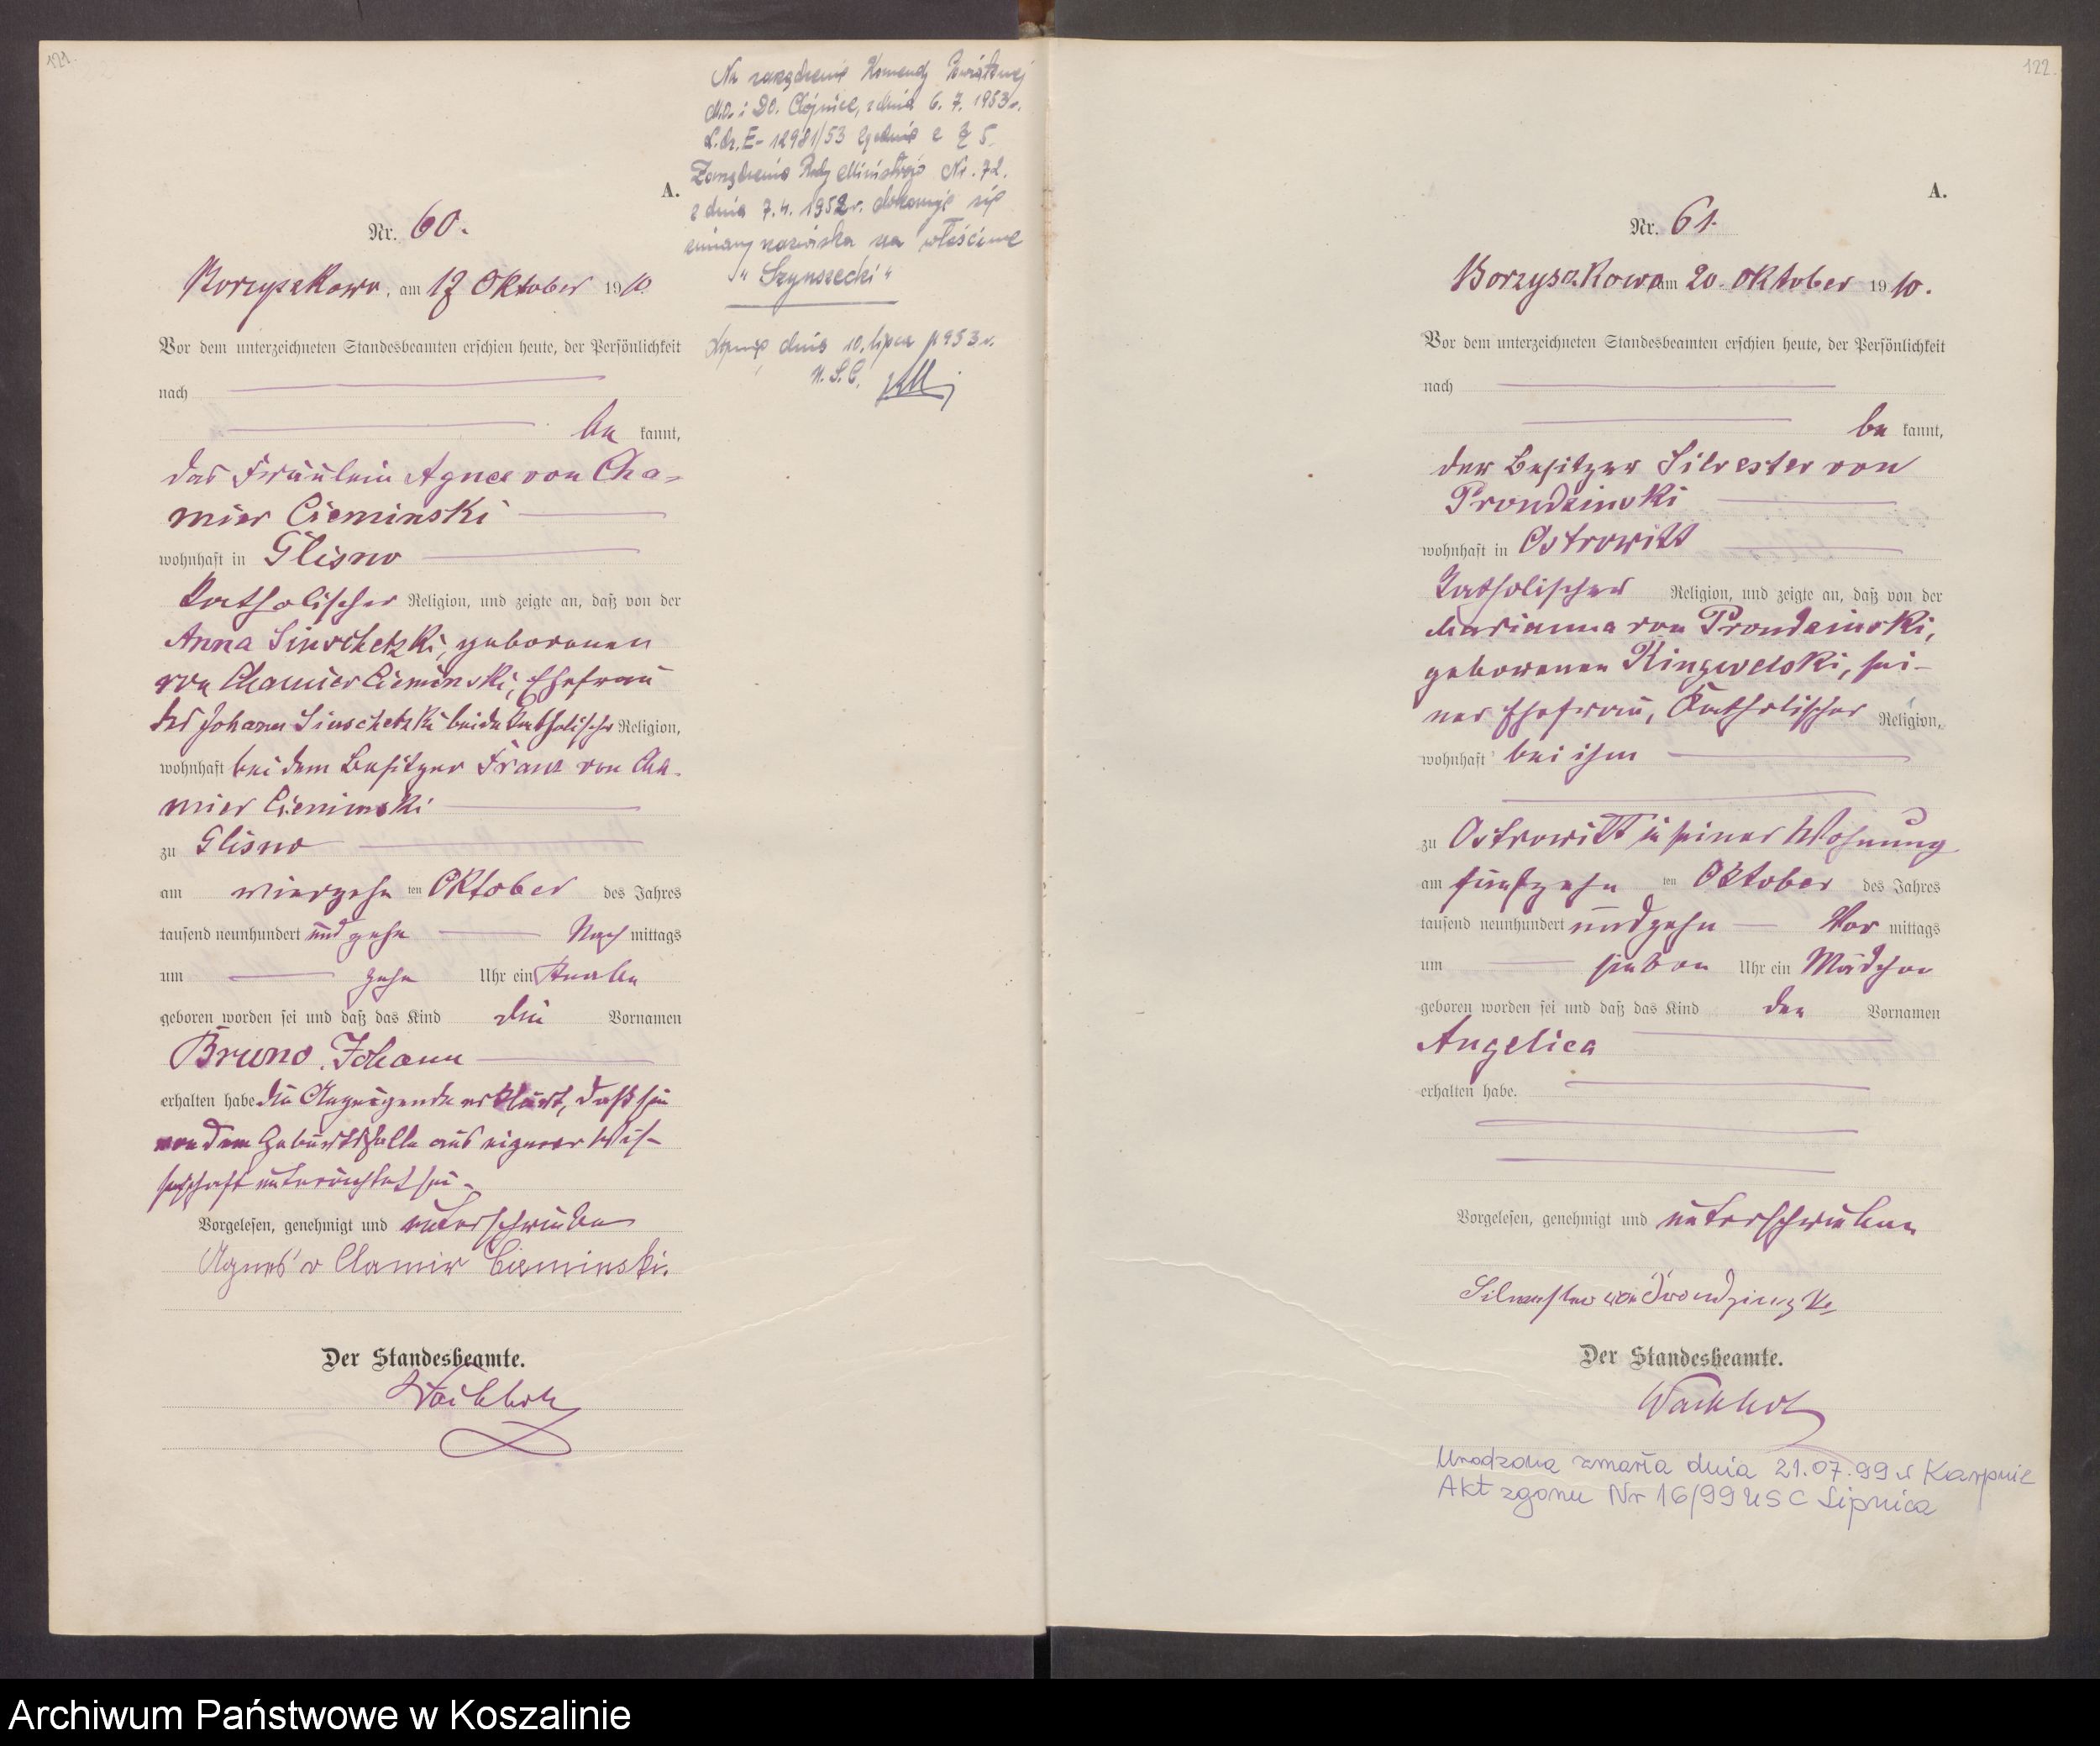 121.
A.
Nr. 60.
Borzyszkowo, am 17 Oktober 1910.
Vor dem unterzeichneten Standesbeamten erschien heute, der Persönlichkeit
nach
be kannt,
das Fräulein Agnes von Cha-
mier Cieminski
wohnhaft in Glisno
katholischer Religion, und zeigte an, daß von der
Anna Sinschetzki, geborenen
von Chamier Cieminski, Ehefrau
des Johann Sinschetzki beide katholischer Religion,
wohnhaft bei dem Besitzer Franz von Cha-
mier Cieminski
zu Glisno
am vierzehn ten Oktober des Jahres
tausend neunhundert und zehn Nach mittags
um zehn Uhr ein Knabe
geboren worden sei und daß das Kind die Vornamen
Bruno Johann
erhalten habe die Anzeigende erklärt, daß sie
von dem Geburtsfalle aus eigener Wis-
senschaft unterrichtet sei.
Vorgelesen, genehmigt und unterschrieben
Agnes v Chamier Cieminski.
Der Standesbeamte.
Na zarządzenie Komendy Powiatowej
M.O. i DO. Chojnice, z dnia 6. 7. 1953 r.
L.dz. E-12981/53 zgodnie z § 5.
Zarządzenia Rady Ministrów Nr. 72.
z dnia 7.4. 1952 r. dokonuje się
zmiany nazwiska na właściwe
"Szynszecki"
dnia 10. lipca 1953 r.
U.S.C.
122.
A.
Nr. 61.
Borzyszkowo am 20. Oktober 1910.
Vor dem unterzeichneten Standesbeamten erschien heute, der Persönlichkeit
nach
be kannt,
der Besitzer Silvester von
Prondzinski
wohnhaft in Ostrowitt
katholischer Religion, und zeigte an, daß von der
Marianna von Prondzinski,
geborenen Ringwelski, sei-
ner Ehefrau, katholischer Religion,
wohnhaft bei ihm
zu Ostrowitt in seiner Wohnung
am fünfzehn ten Oktober des Jahres
tausend neunhundert und zehn Vor mittags
um sieben Uhr ein Mädchen
geboren worden sei und daß das Kind den Vornamen
Angelica
erhalten habe.
Vorgelesen, genehmigt und unterschrieben
Silvester von Prondzinski
Der Standesbeamte.
Urodzona zmarła dnia 21.07.99 w Karpnie
Akt zgonu Nr 16/99 USC Lipnica
Archiwum Państwowe w Koszalinie